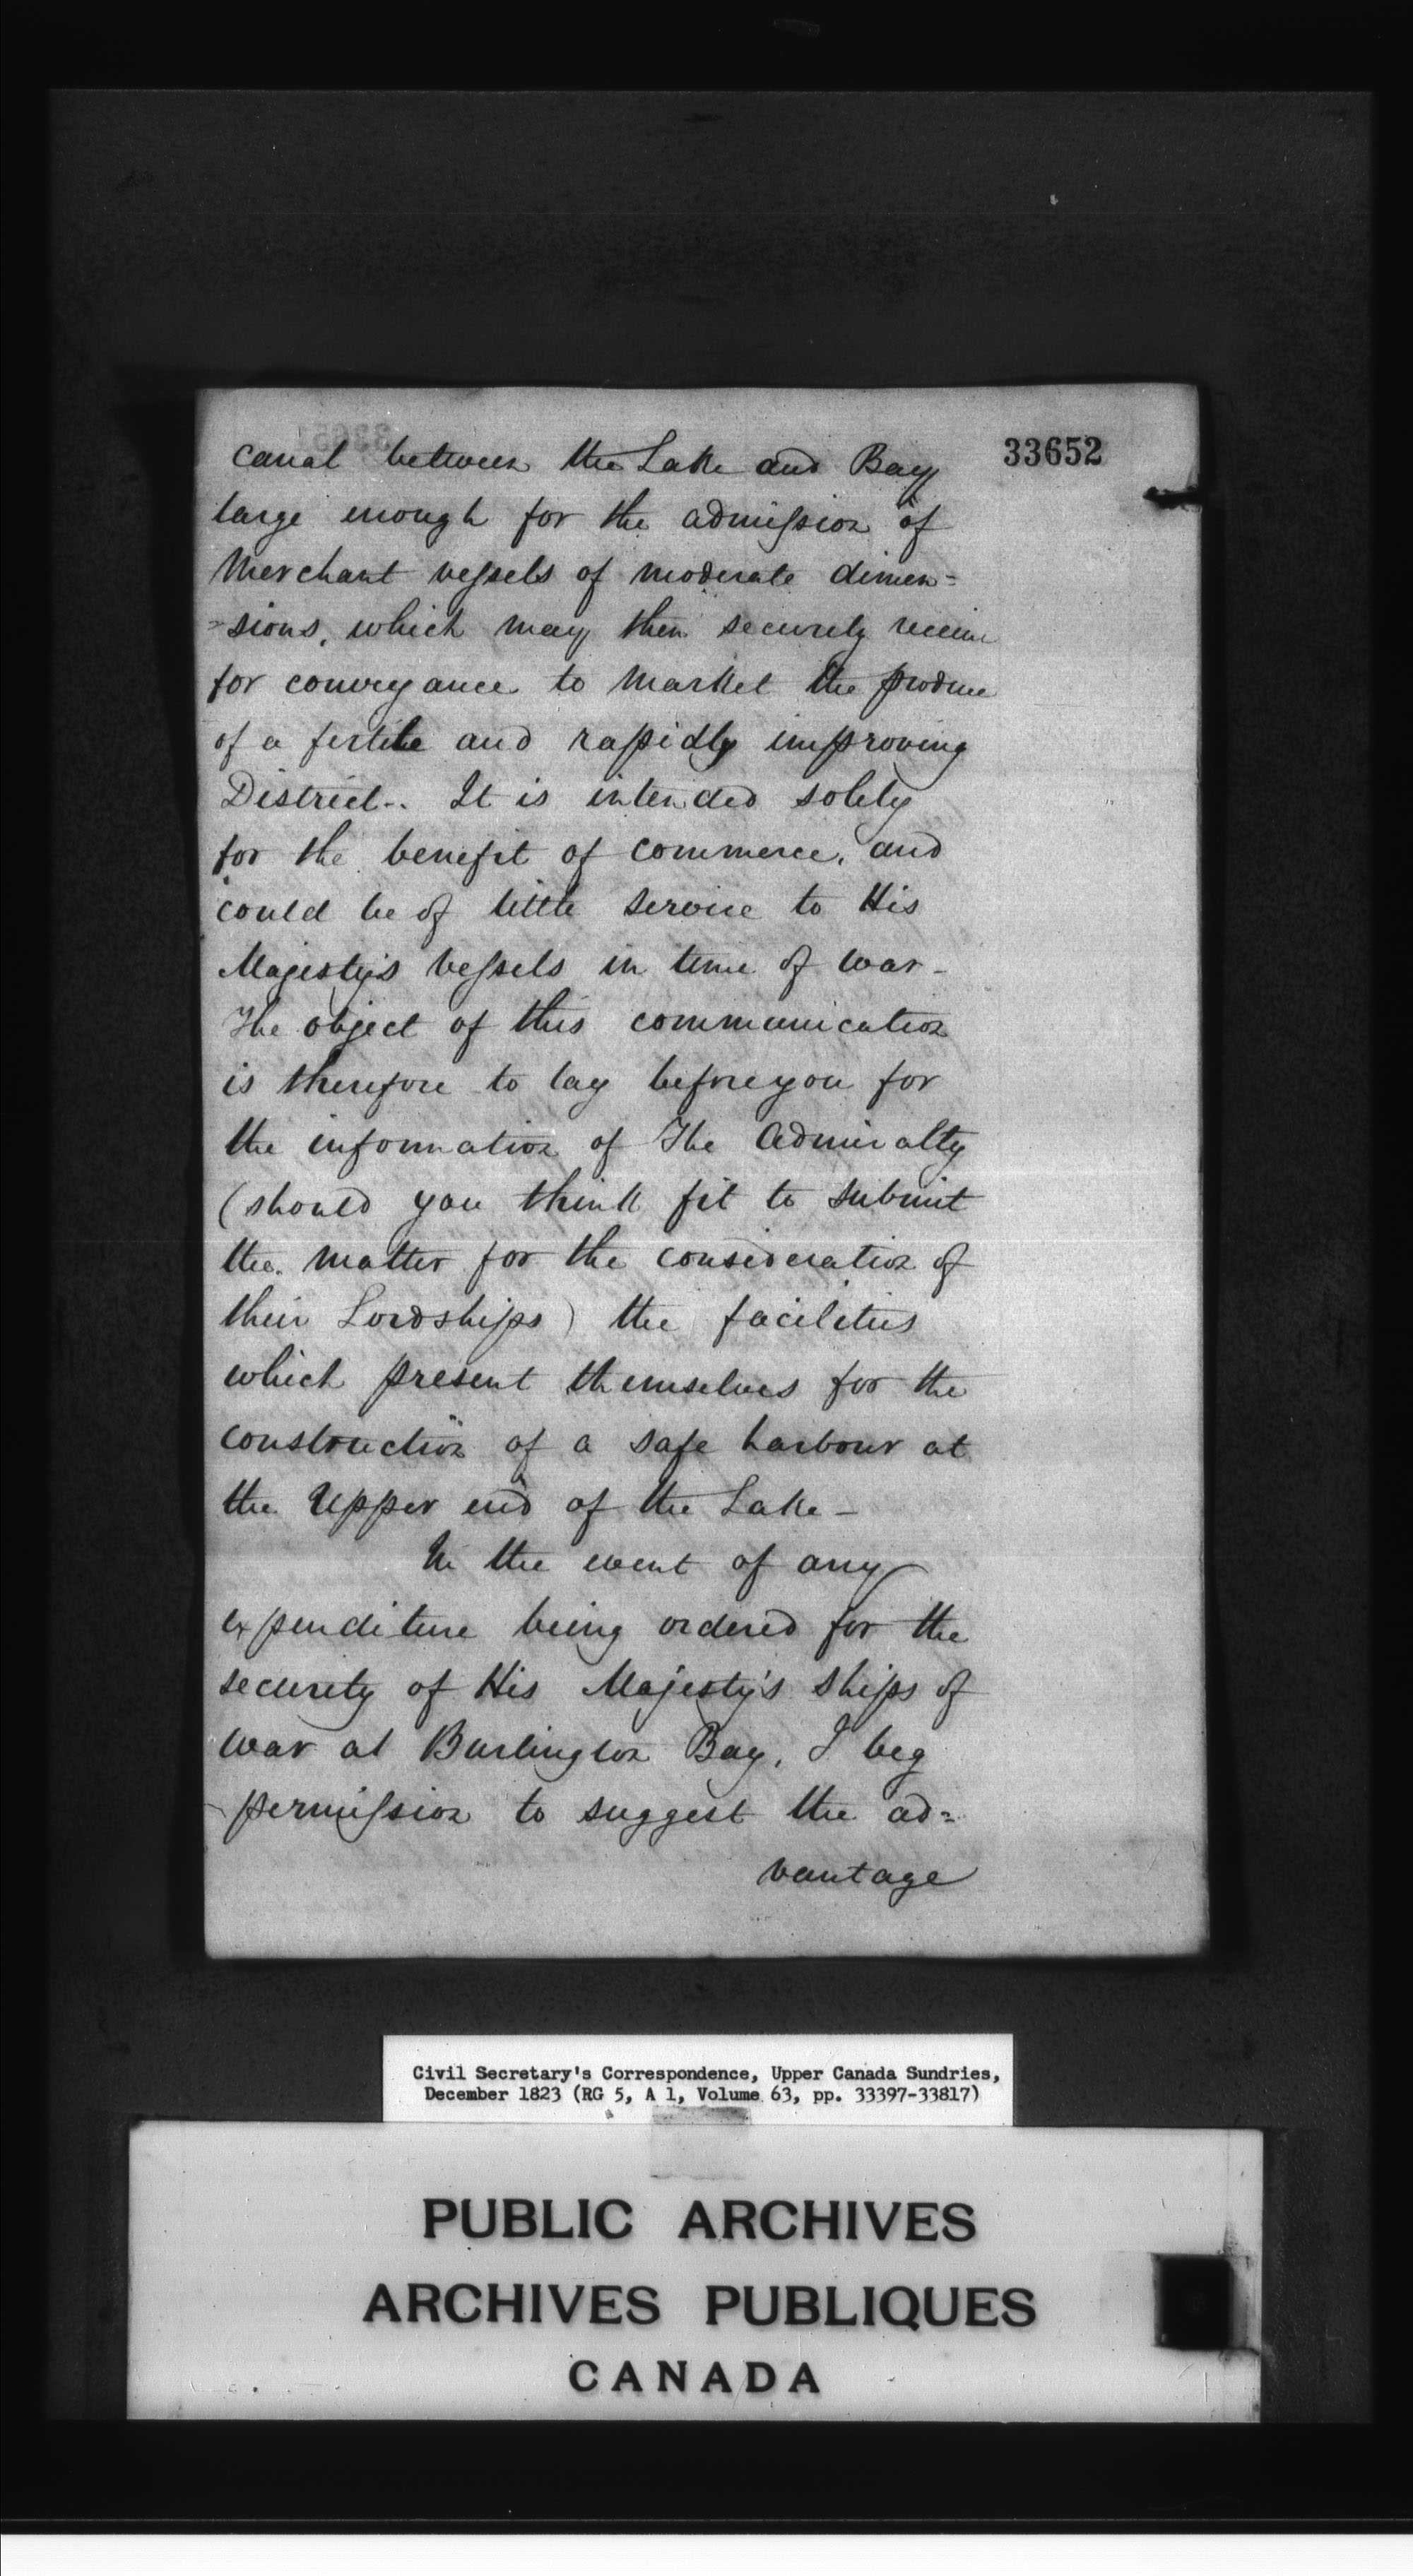 33652
canal between the Lake and Bay
large enough for the admission of
Merchant vessels of moderate dimen=
=sions, which may then securely receive
for conveyance to Market the produce
of a fertile and rapidly improving
District-. It is intended solely
for the benefit of commerce, and
could be of little service to His
Majesty's vessels in time of war-
The object of this communication
is therefore to lay before you for
the information of The Admiralty
(should you think fit to submit
the matter for the consideration of
their Lordships) the facilities
which present themselves for the
construction of a safe harbour at
the Upper end of the Lake-
In the event of any
expenditure being ordered for the
security of His Majesty's Ships of
war at Burlington Bay, I beg
permission to suggest the ad=
vantage
Civil Secretary's Correspondence, Upper Canada Sundries,
December 1823 (RG 5, A 1, Volume 63, pp. 33397-33817)
PUBLIC ARCHIVES
ARCHIVES PUBLIQUES
CANADA